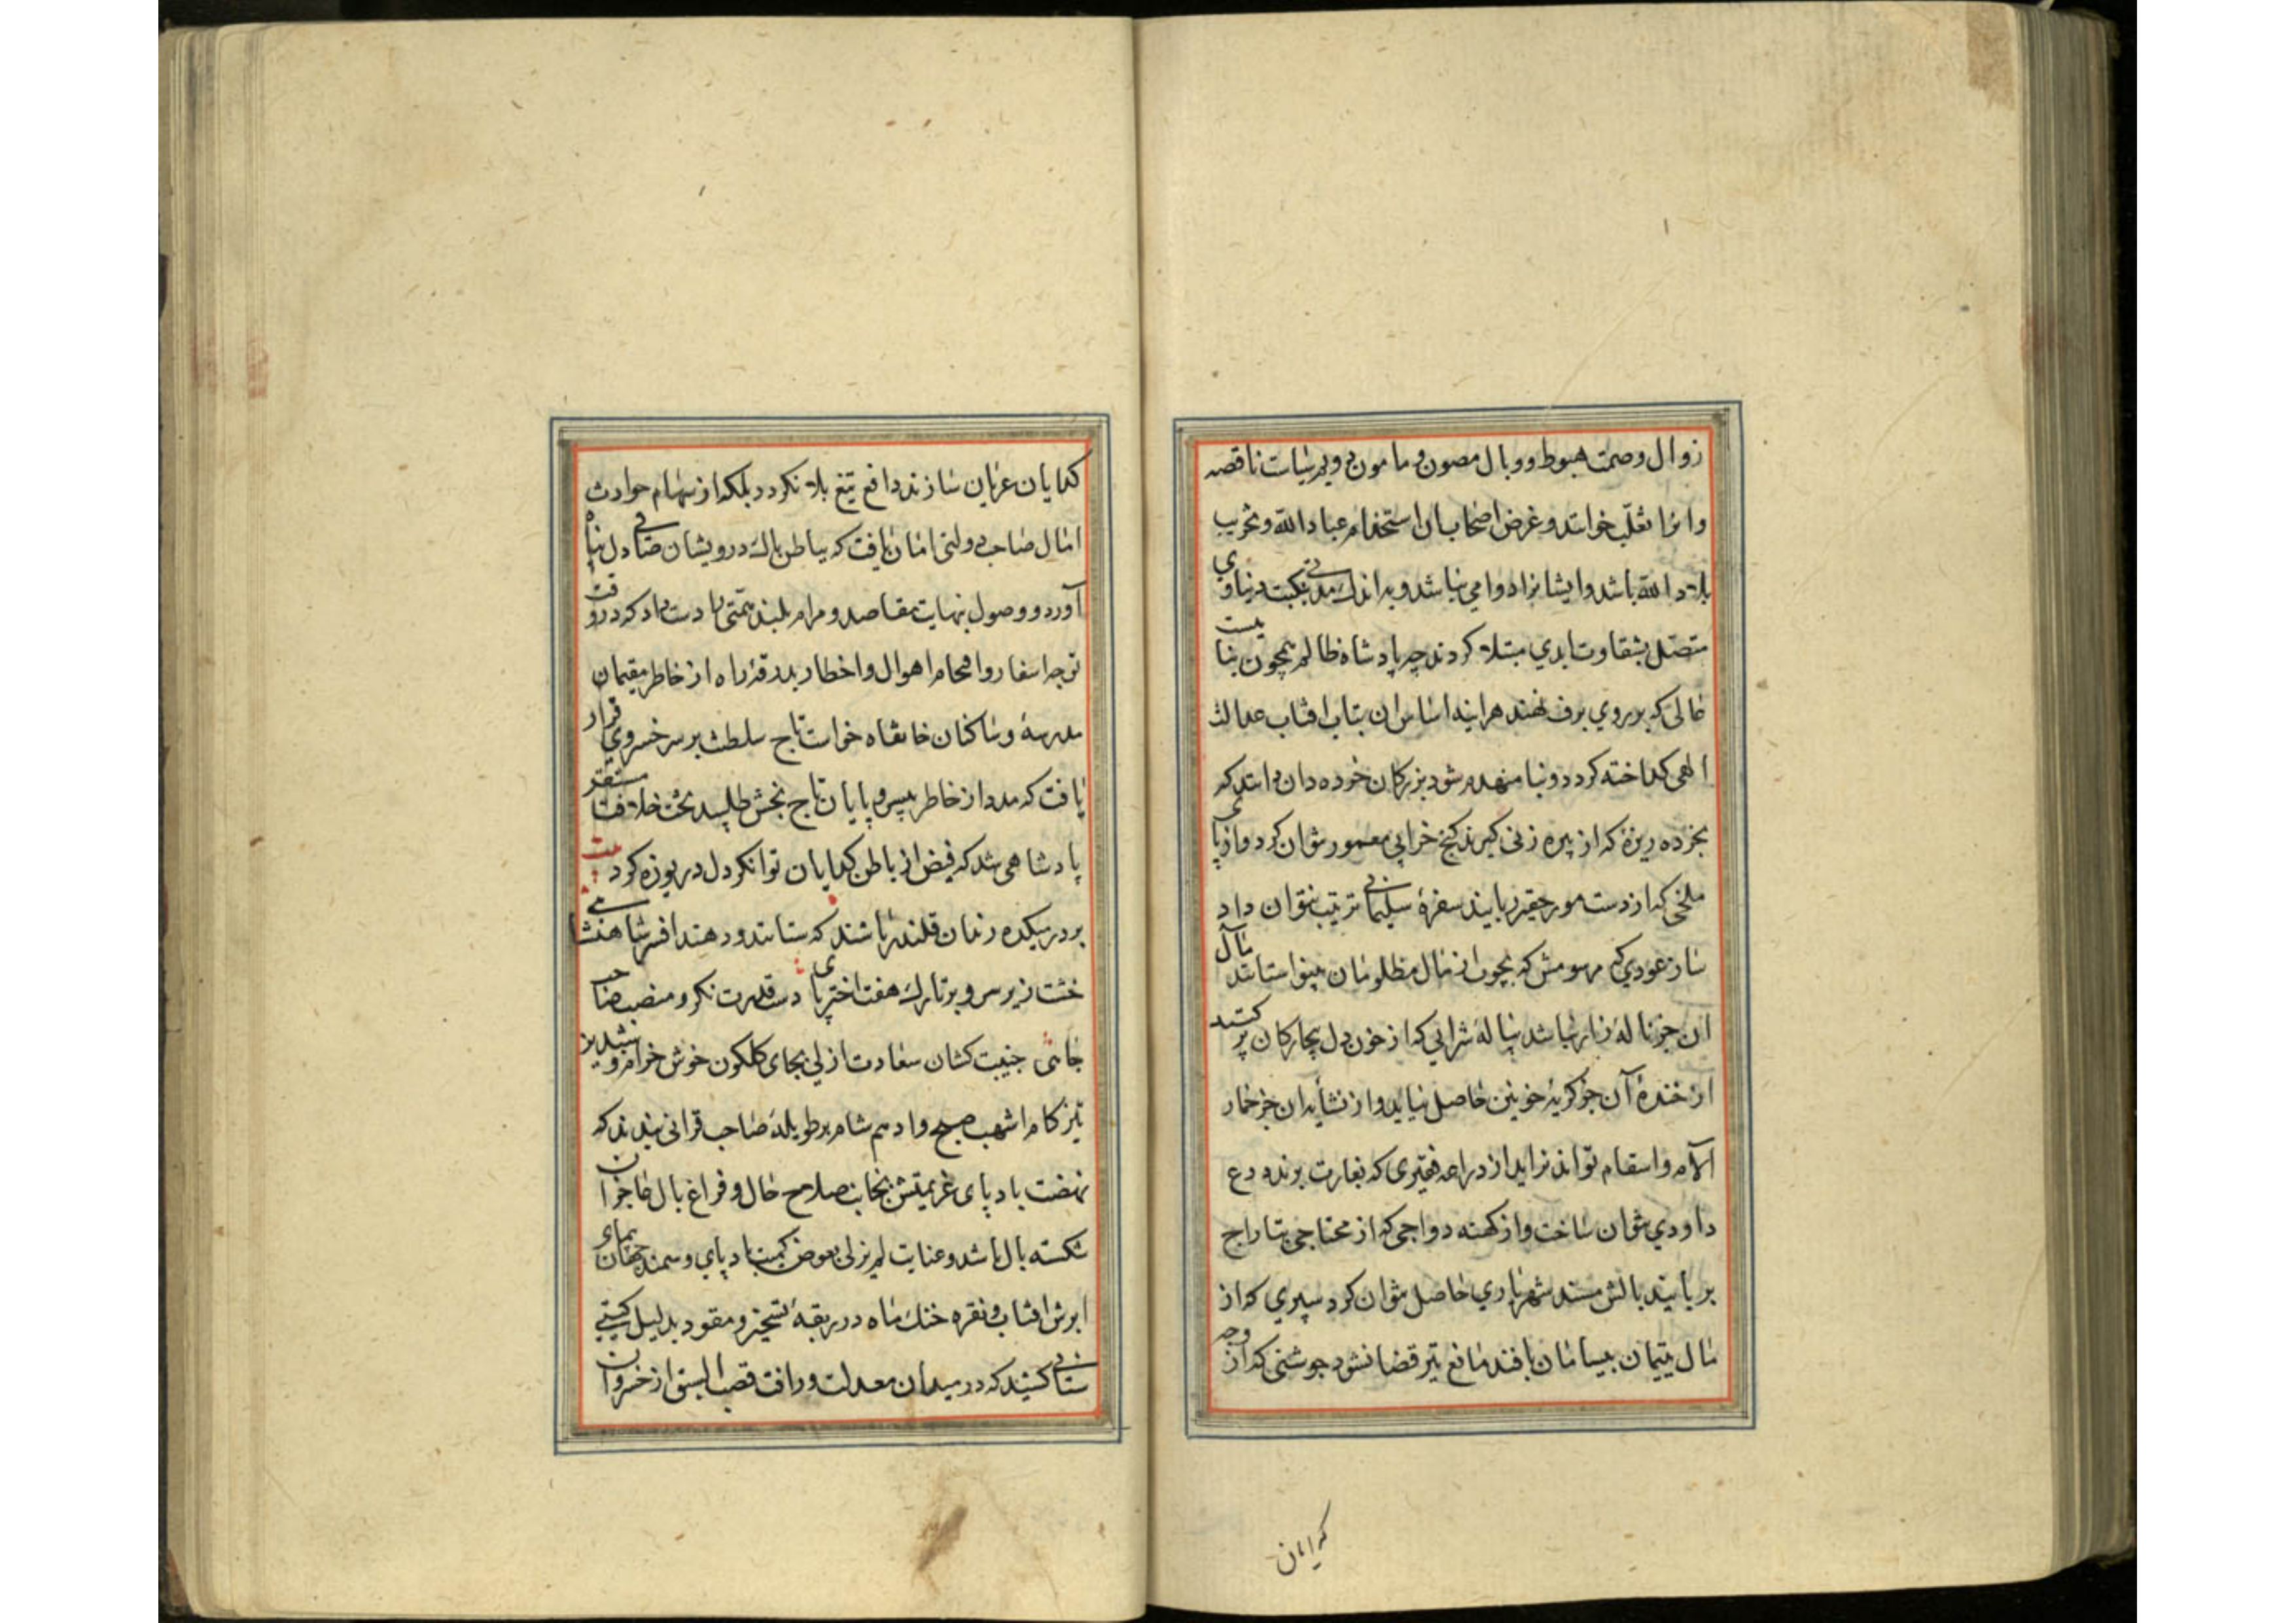 زوال وصمت هبوط و وبال مصون و مامون دویم سیاست ناقصه
و انرا تغلب خوانند و غرض اصحاب ان استخدام عباد الله و تخریب
بلاد الله باشد و ایشانرا دوامی نباشد و به اندک مدتی نکبت دنیاوی
متصل بشقاوت ابدی مبتلا کردند چه پادشاه ظالم همچون بنا
که بر روی برف نهند هراینه اساس ان بتاب افتاب عدالت
الهی کداخته کردد و بنا منهدم شود بزرکان خورده دان دانند که
بخرده ریزهٔ که از پیره زنی کیرند کنج خرابی معمور نتوان کرد و از پای
ملخی که از دست مور حقیر ربایند سفرهٔ سلیمانی ترتیب نتوان داد
ساز عودی که بچوب از مال مظلومان بینوا ستانند مال
ان جز نالهٔ زار نباشد پیالهٔ شرابی که از خون دل بیچارکان پر کنند
از خندهٔ آن جز کریهٔ خونین حاصل نیاید و از نشاٴه ان جز خمار
آلام و اسقام تواند نزاید از دراعه فقیری که بغارت برند درع
داودی نتوان ساخت و از کهنه دواجی که از محتاجی بتاراج
بربایند بالش مسند شهریاری حاصل نتوان کرد سپری که از
مال یتیمان بیسامان بافند مانع تیر قضا نشود جوشنی که از وجه
کدایان
کدایان عریان سازند دافع تیغ بلا نکردد بلکه از سهام حوادث
امال صاحب دولتی امان یافت که بباطن پاک درویشان صافی دل پناه
آورد و وصول بنهایت مقاصد و مرام بلند همتی را دست داد که در وقت
توجه اسفار و اقحام اهوال و اخطار بدرقهٔ راه از خاطر مقیمان
مدرسه و ساکنان خانقاه خواست تاج سلطنت بر سر خسروی قرار
یافت که مدد از خاطر بیسر و پایان تاج بخش طلبید تخت خلافت مستقر
پادشاهی شد که فیض از باطن کدایان توانکر دل دریوزه کرد بیت
بر در میکده رندان قلندر باشند که ستانند و دهند افسر شاهنشاهی
خشت زیر سر و بر تارک هفت اختر پای دست قدرت نکر و منصب صاحب
جاهی جنیبت کشان سعادت ازلی بجای کلکون خوش خرام و شبدیز
تیز کام اشهب صبح و ادهم شام بر طویلهٔ صاحب قرانی بندند که
نهضت باد پای عزیمتش بجانب صلاح حال و فراغ بال عاجزان
شکسته بال باشد و عنایت لم یزلی بعوض کمیت باد پای و سمند جهان پیمای
ابرش افتاب و نقره خنک ماه در ربقهٔ تسخیر و مقود بدلیل کیتی
ستانی کشد که در میدان معدلت و رافت قصب السبق از خسروان